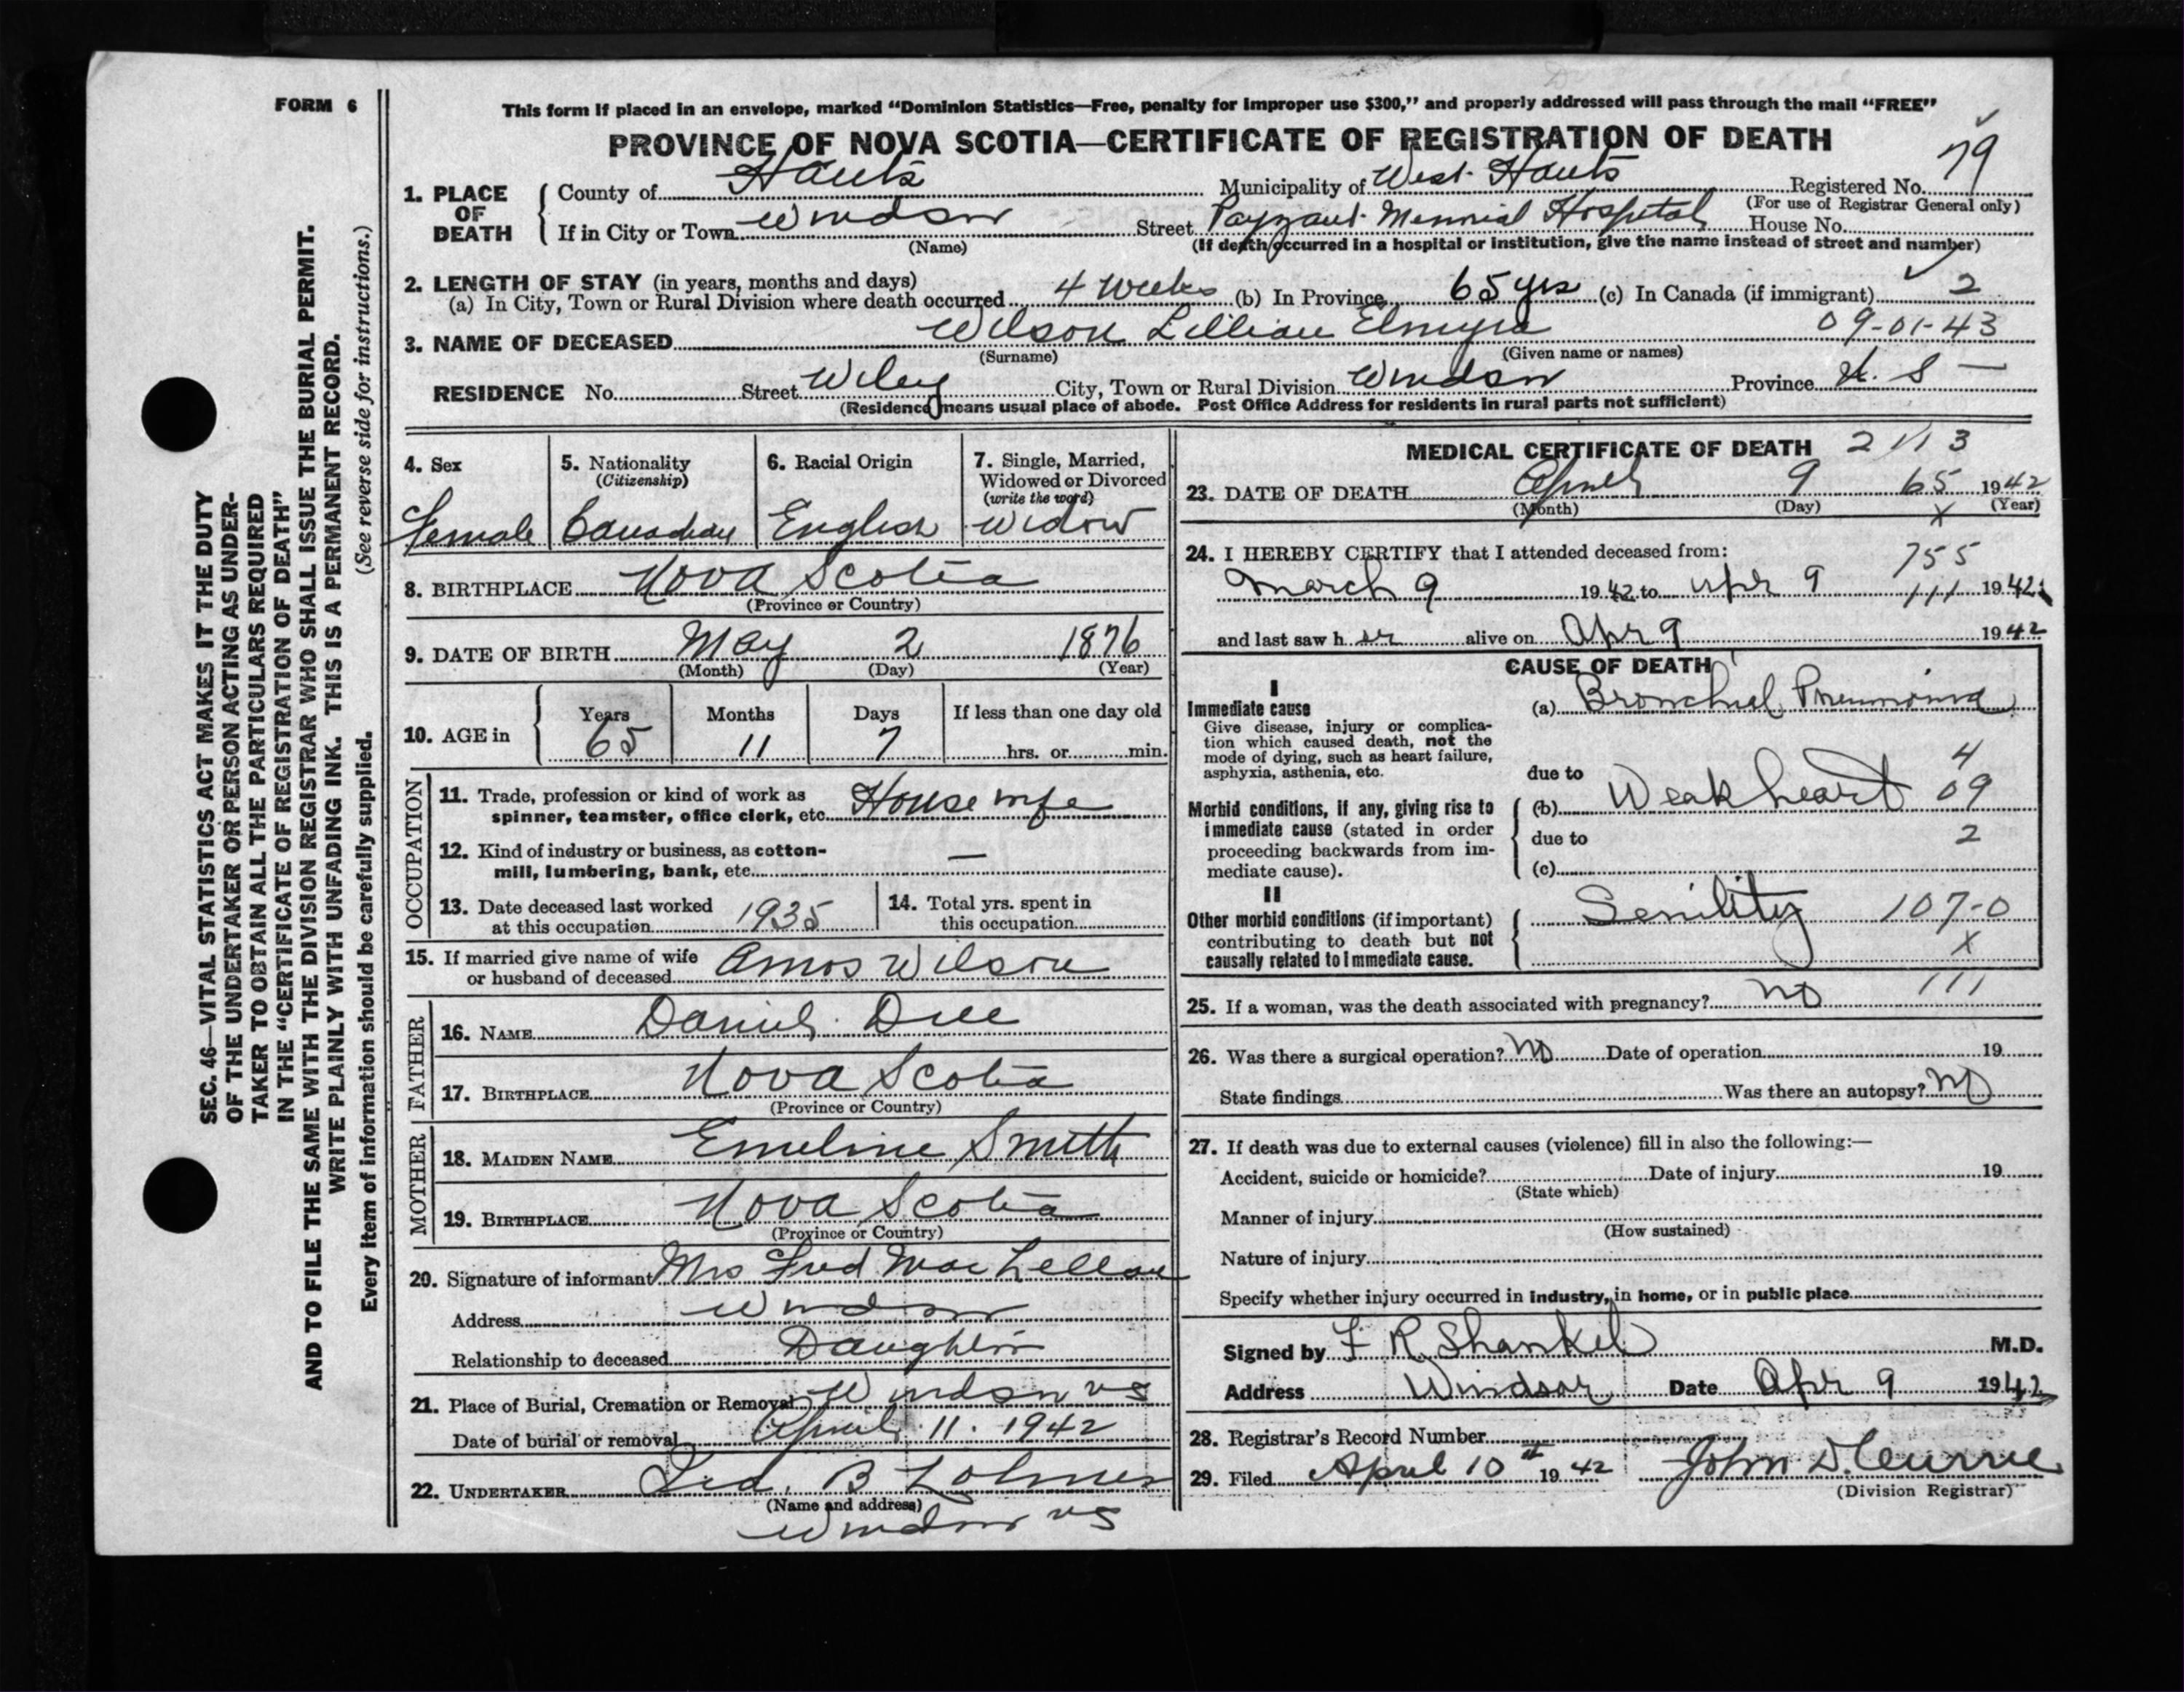 FORM 6
This form if placed in an envelope, marked “Dominion Statistics—Free, penalty for improper use $300,” and properly addressed will pass through the mail “FREE”
PROVINCE OF NOVA SCOTIA—CERTIFICATE OF REGISTRATION OF DEATH
79
1. PLACE OF DEATH
County of Hants Municipality of West Hants Registered No.
(For use of Registrar General only)
If in City or Town Windsor Street Payzant Memorial Hospital House No.
(Name) (If death occurred in a hospital or institution, give the name instead of street and number)
2. LENGTH OF STAY (in years, months and days)
(a) In City, Town or Rural Division where death occurred 4 weeks (b) In Province 65 yrs (c) In Canada (if immigrant) 2
3. NAME OF DECEASED Wilson Lillian Elmyra 09-01-43
(Surname) (Given name or names)
RESIDENCE No. Street Wiley City, Town or Rural Division Windsor Province N. S —
(Residence means usual place of abode. Post Office Address for residents in rural parts not sufficient)
4. Sex
Female
5. Nationality
(Citizenship)
Canadian
6. Racial Origin
English
7. Single, Married,
Widowed or Divorced
(write the word)
Widow
8. BIRTHPLACE Nova Scotia
(Province or Country)
9. DATE OF BIRTH May 2 1876
(Month) (Day) (Year)
10. AGE in
Years Months Days If less than one day old
65 11 7 hrs. or min.
OCCUPATION
11. Trade, profession or kind of work as
spinner, teamster, office clerk, etc. Housewife
12. Kind of industry or business, as cotton-
mill, lumbering, bank, etc. —
13. Date deceased last worked
at this occupation 1935
14. Total yrs. spent in
this occupation
15. If married give name of wife
or husband of deceased Amos Wilson
FATHER
16. NAME Daniel
17. BIRTHPLACE Nova Scotia
(Province or Country)
MOTHER
18. MAIDEN NAME Emeline Smith
19. BIRTHPLACE Nova Scotia
(Province or Country)
20. Signature of informant Mrs Fred MacLellan
Address Windsor
Relationship to deceased Daughter
21. Place of Burial, Cremation or Removal Windsor NS
Date of burial or removal April 11. 1942
22. UNDERTAKER B
(Name and address)
Windsor NS
MEDICAL CERTIFICATE OF DEATH 2 113
23. DATE OF DEATH April 9 65 1942
(Month) (Day) X (Year)
24. I HEREBY CERTIFY that I attended deceased from: 755
March 9 1942 to Apr 9 111 1942
and last saw her alive on Apr 9 1942
CAUSE OF DEATH
I
Immediate cause
Give disease, injury or complica-
tion which caused death, not the
mode of dying, such as heart failure,
asphyxia, asthenia, etc.
(a) Bronchial Pneumonia
4
due to
Morbid conditions, if any, giving rise to
immediate cause (stated in order
proceeding backwards from im-
mediate cause).
(b) Weak heart 09
due to 2
(c)
II
Other morbid conditions (if important)
contributing to death but not
causally related to immediate cause.
Senility 107-0
X
25. If a woman, was the death associated with pregnancy? No 111
26. Was there a surgical operation? No Date of operation 19
State findings Was there an autopsy? No
27. If death was due to external causes (violence) fill in also the following:—
Accident, suicide or homicide? Date of injury 19
(State which)
Manner of injury
(How sustained)
Nature of injury
Specify whether injury occurred in industry, in home, or in public place
Signed by F R Shankel M.D.
Address Windsor Date Apr 9 1942
28. Registrar’s Record Number
29. Filed April 10th 1942 John D. Currie
(Division Registrar)
SEC. 46—VITAL STATISTICS ACT MAKES IT THE DUTY
OF THE UNDERTAKER OR PERSON ACTING AS UNDER-
TAKER TO OBTAIN ALL THE PARTICULARS REQUIRED
IN THE “CERTIFICATE OF REGISTRATION OF DEATH”
AND TO FILE THE SAME WITH THE DIVISION REGISTRAR WHO SHALL ISSUE THE BURIAL PERMIT.
WRITE PLAINLY WITH UNFADING INK. THIS IS A PERMANENT RECORD.
Every item of information should be carefully supplied. (See reverse side for instructions.)